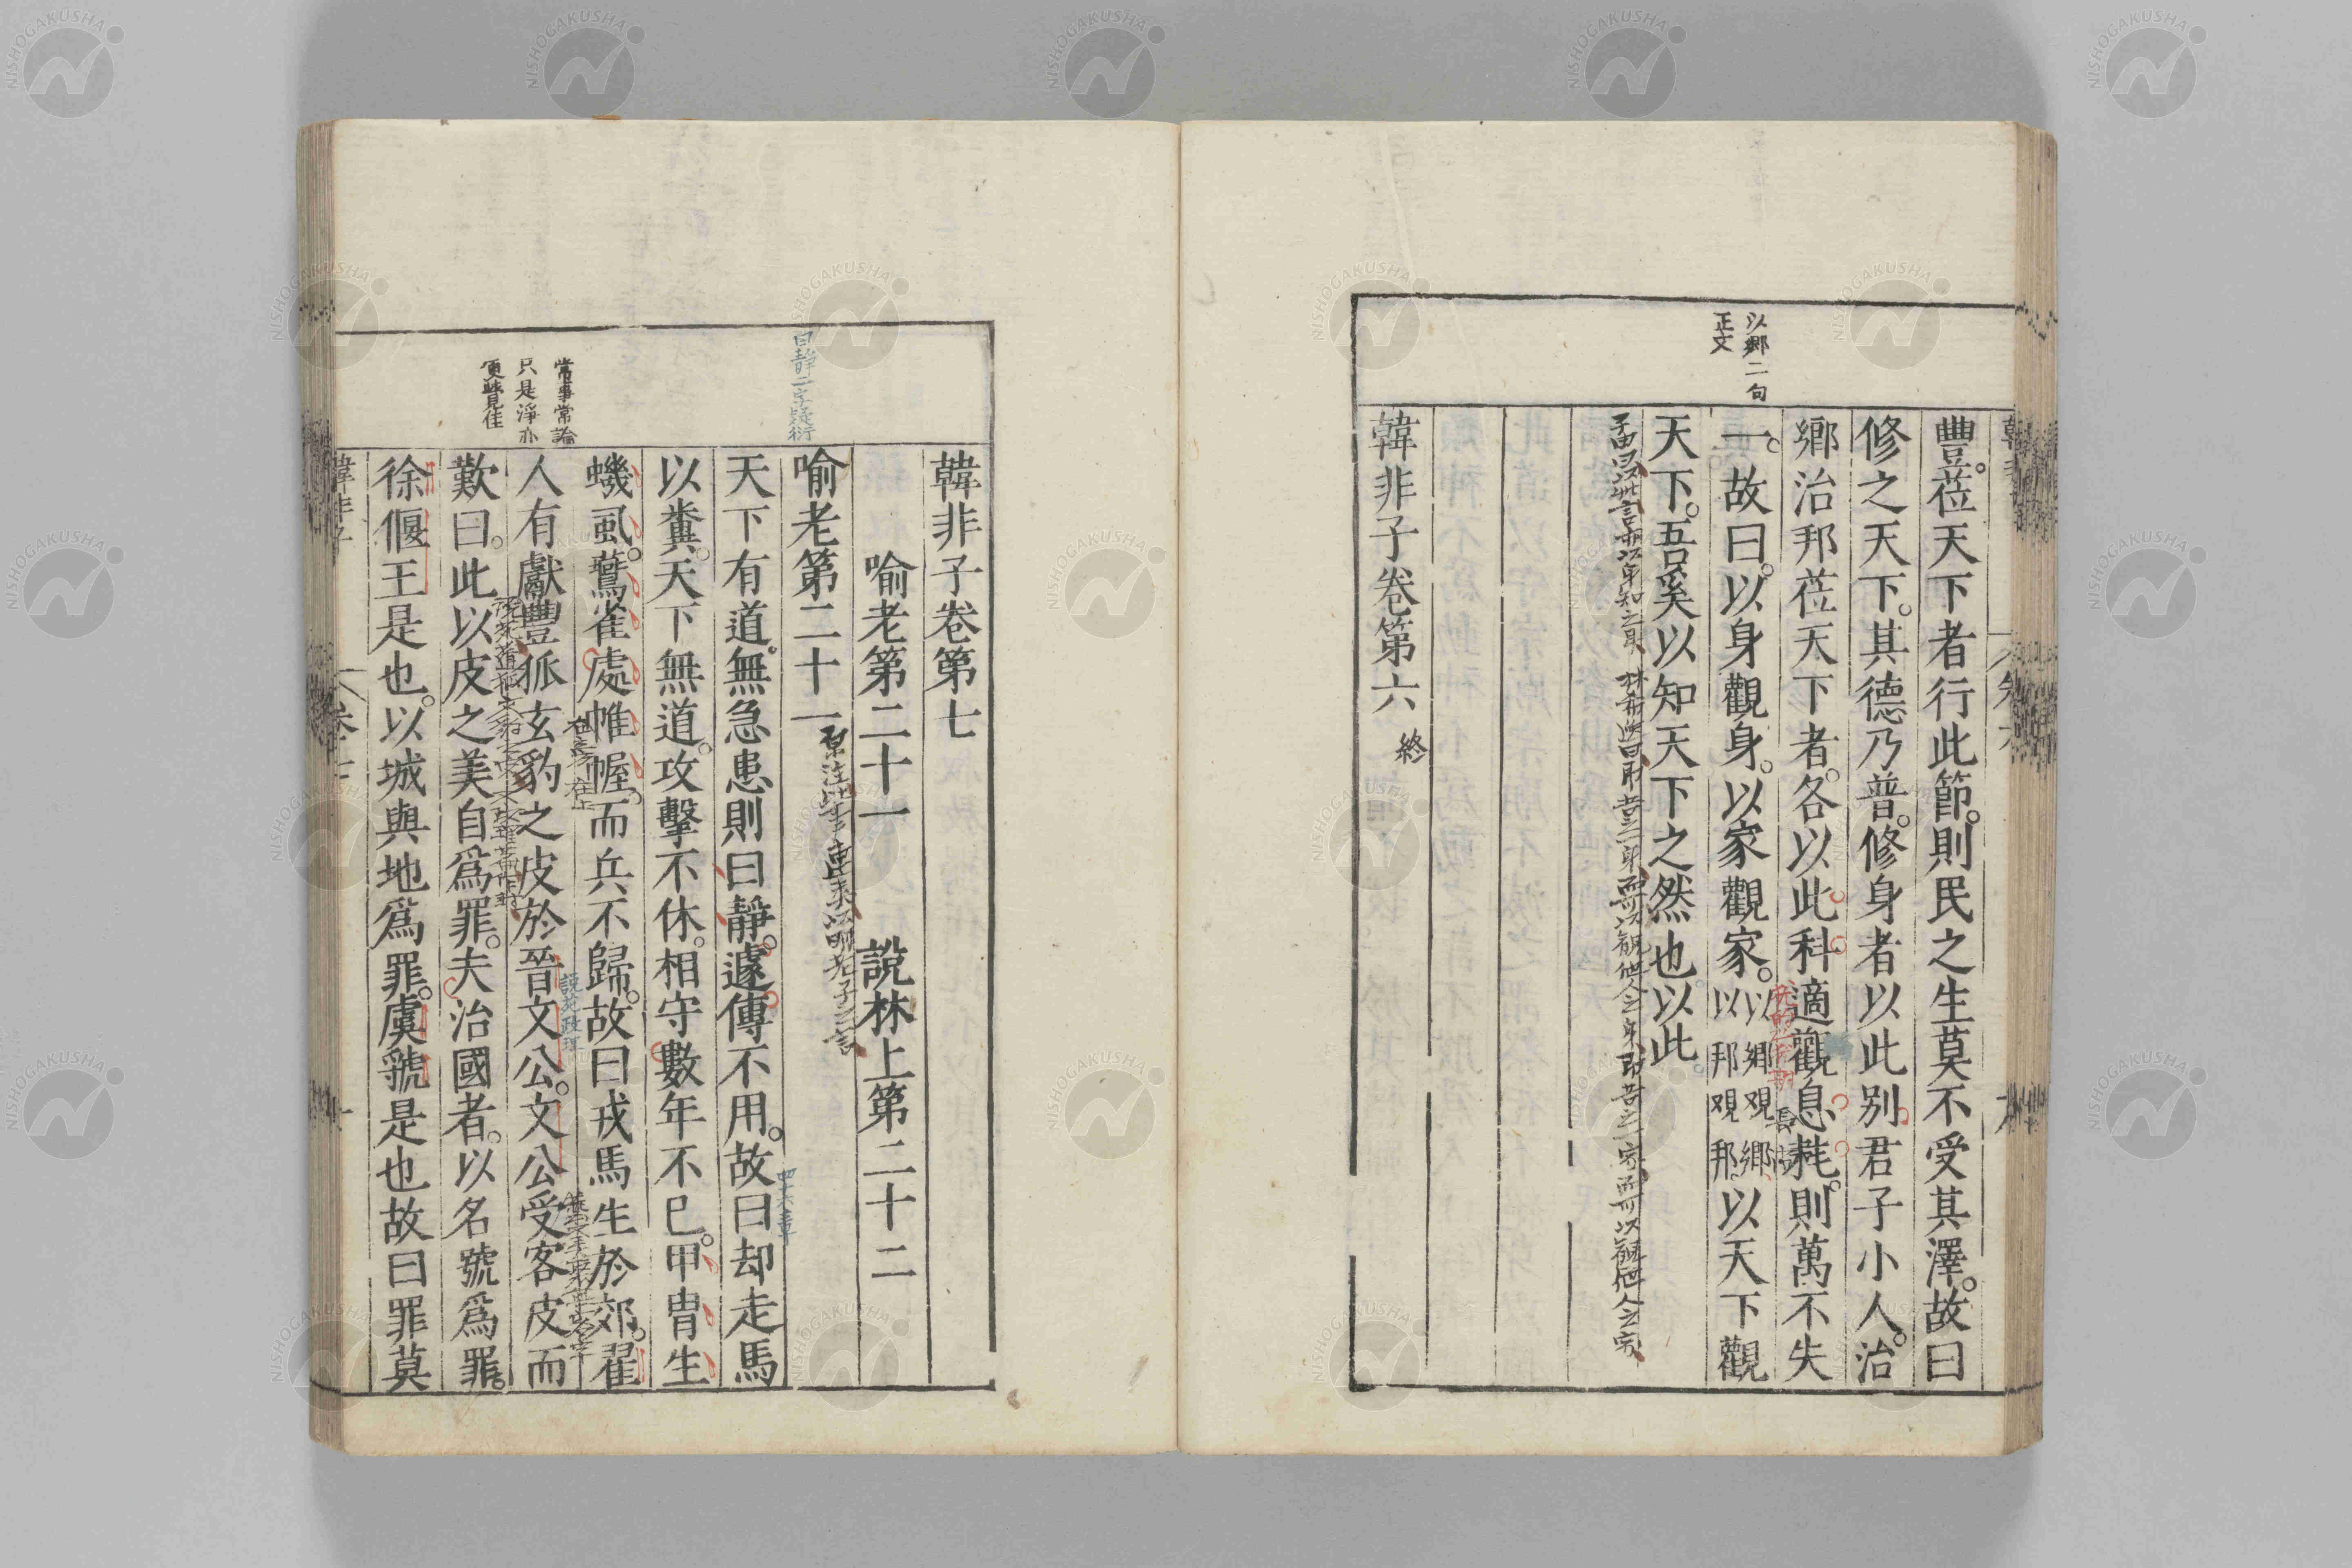 以鄉二句
正文
豐蒞天下者行此節則民之生莫不受其澤故曰
修之天下其德乃普修身者以此别君子小人治
鄉治邦蒞天下者各以此科適觀息耗則萬不失
一故曰以身觀身以家觀家以鄉觀鄉以邦觀邦以天下觀
天下吾奚以知天下之然也以此
韓非子卷第六 終
曰靜二字疑衍
常事常論
只是淨亦
便覺佳
韓非子卷第七
喻老第二十一 說林上第二十二
喻老第二十一
天下有道無急患則曰靜遽傳不用故曰却走馬
以糞天下無道攻擊不休相守數年不已甲冑生
蟣虱鷰雀處帷幄而兵不歸故曰戎馬生於郊翟
人有獻豐狐玄豹之皮於晉文公文公受客皮而
歎曰此以皮之美自爲罪夫治國者以名號爲罪
徐偃王是也以城與地爲罪虞虢是也故曰罪莫
NISHOGAKUSHA